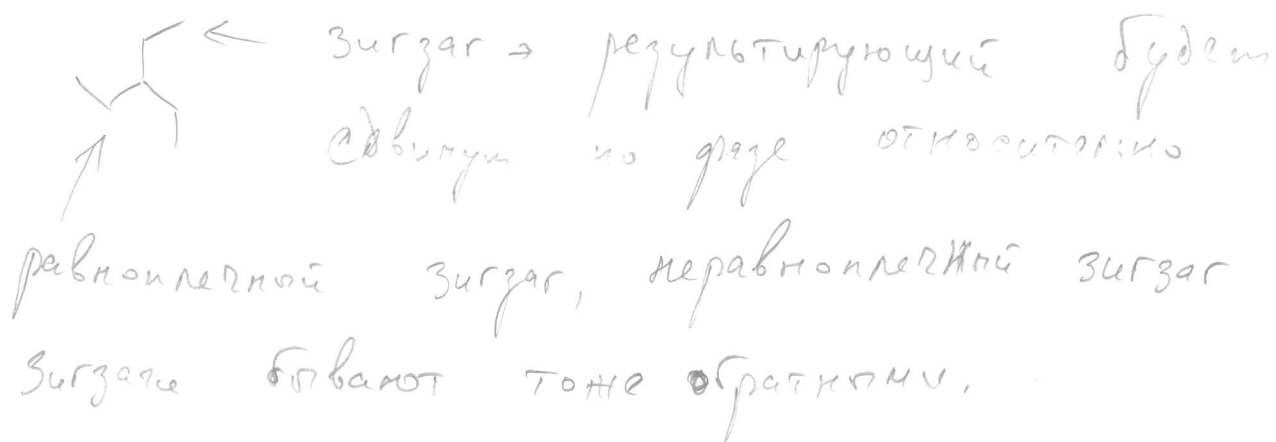 ← зигзаг → результирующий будет
сдвинут по фазе относительно
равноплечный зигзаг, неравноплечный зигзаг
Зигзаги бывают тоже обратными.